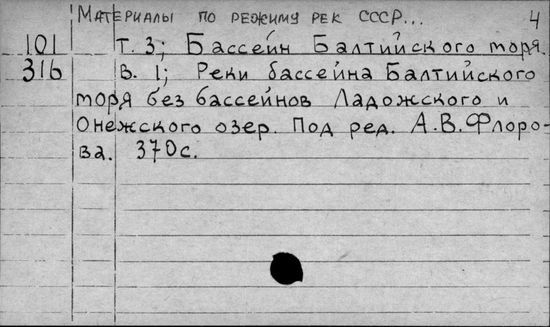 Материалы по режиму рек СССР... 4
101 Т. 3; Бассейн Балтийского моря.
316 В. 1; Реки бассейна Балтийского
моря без бассейнов Ладожского и
Онежского озер. Под ред. А.В.Флоро-
ва. 370с.